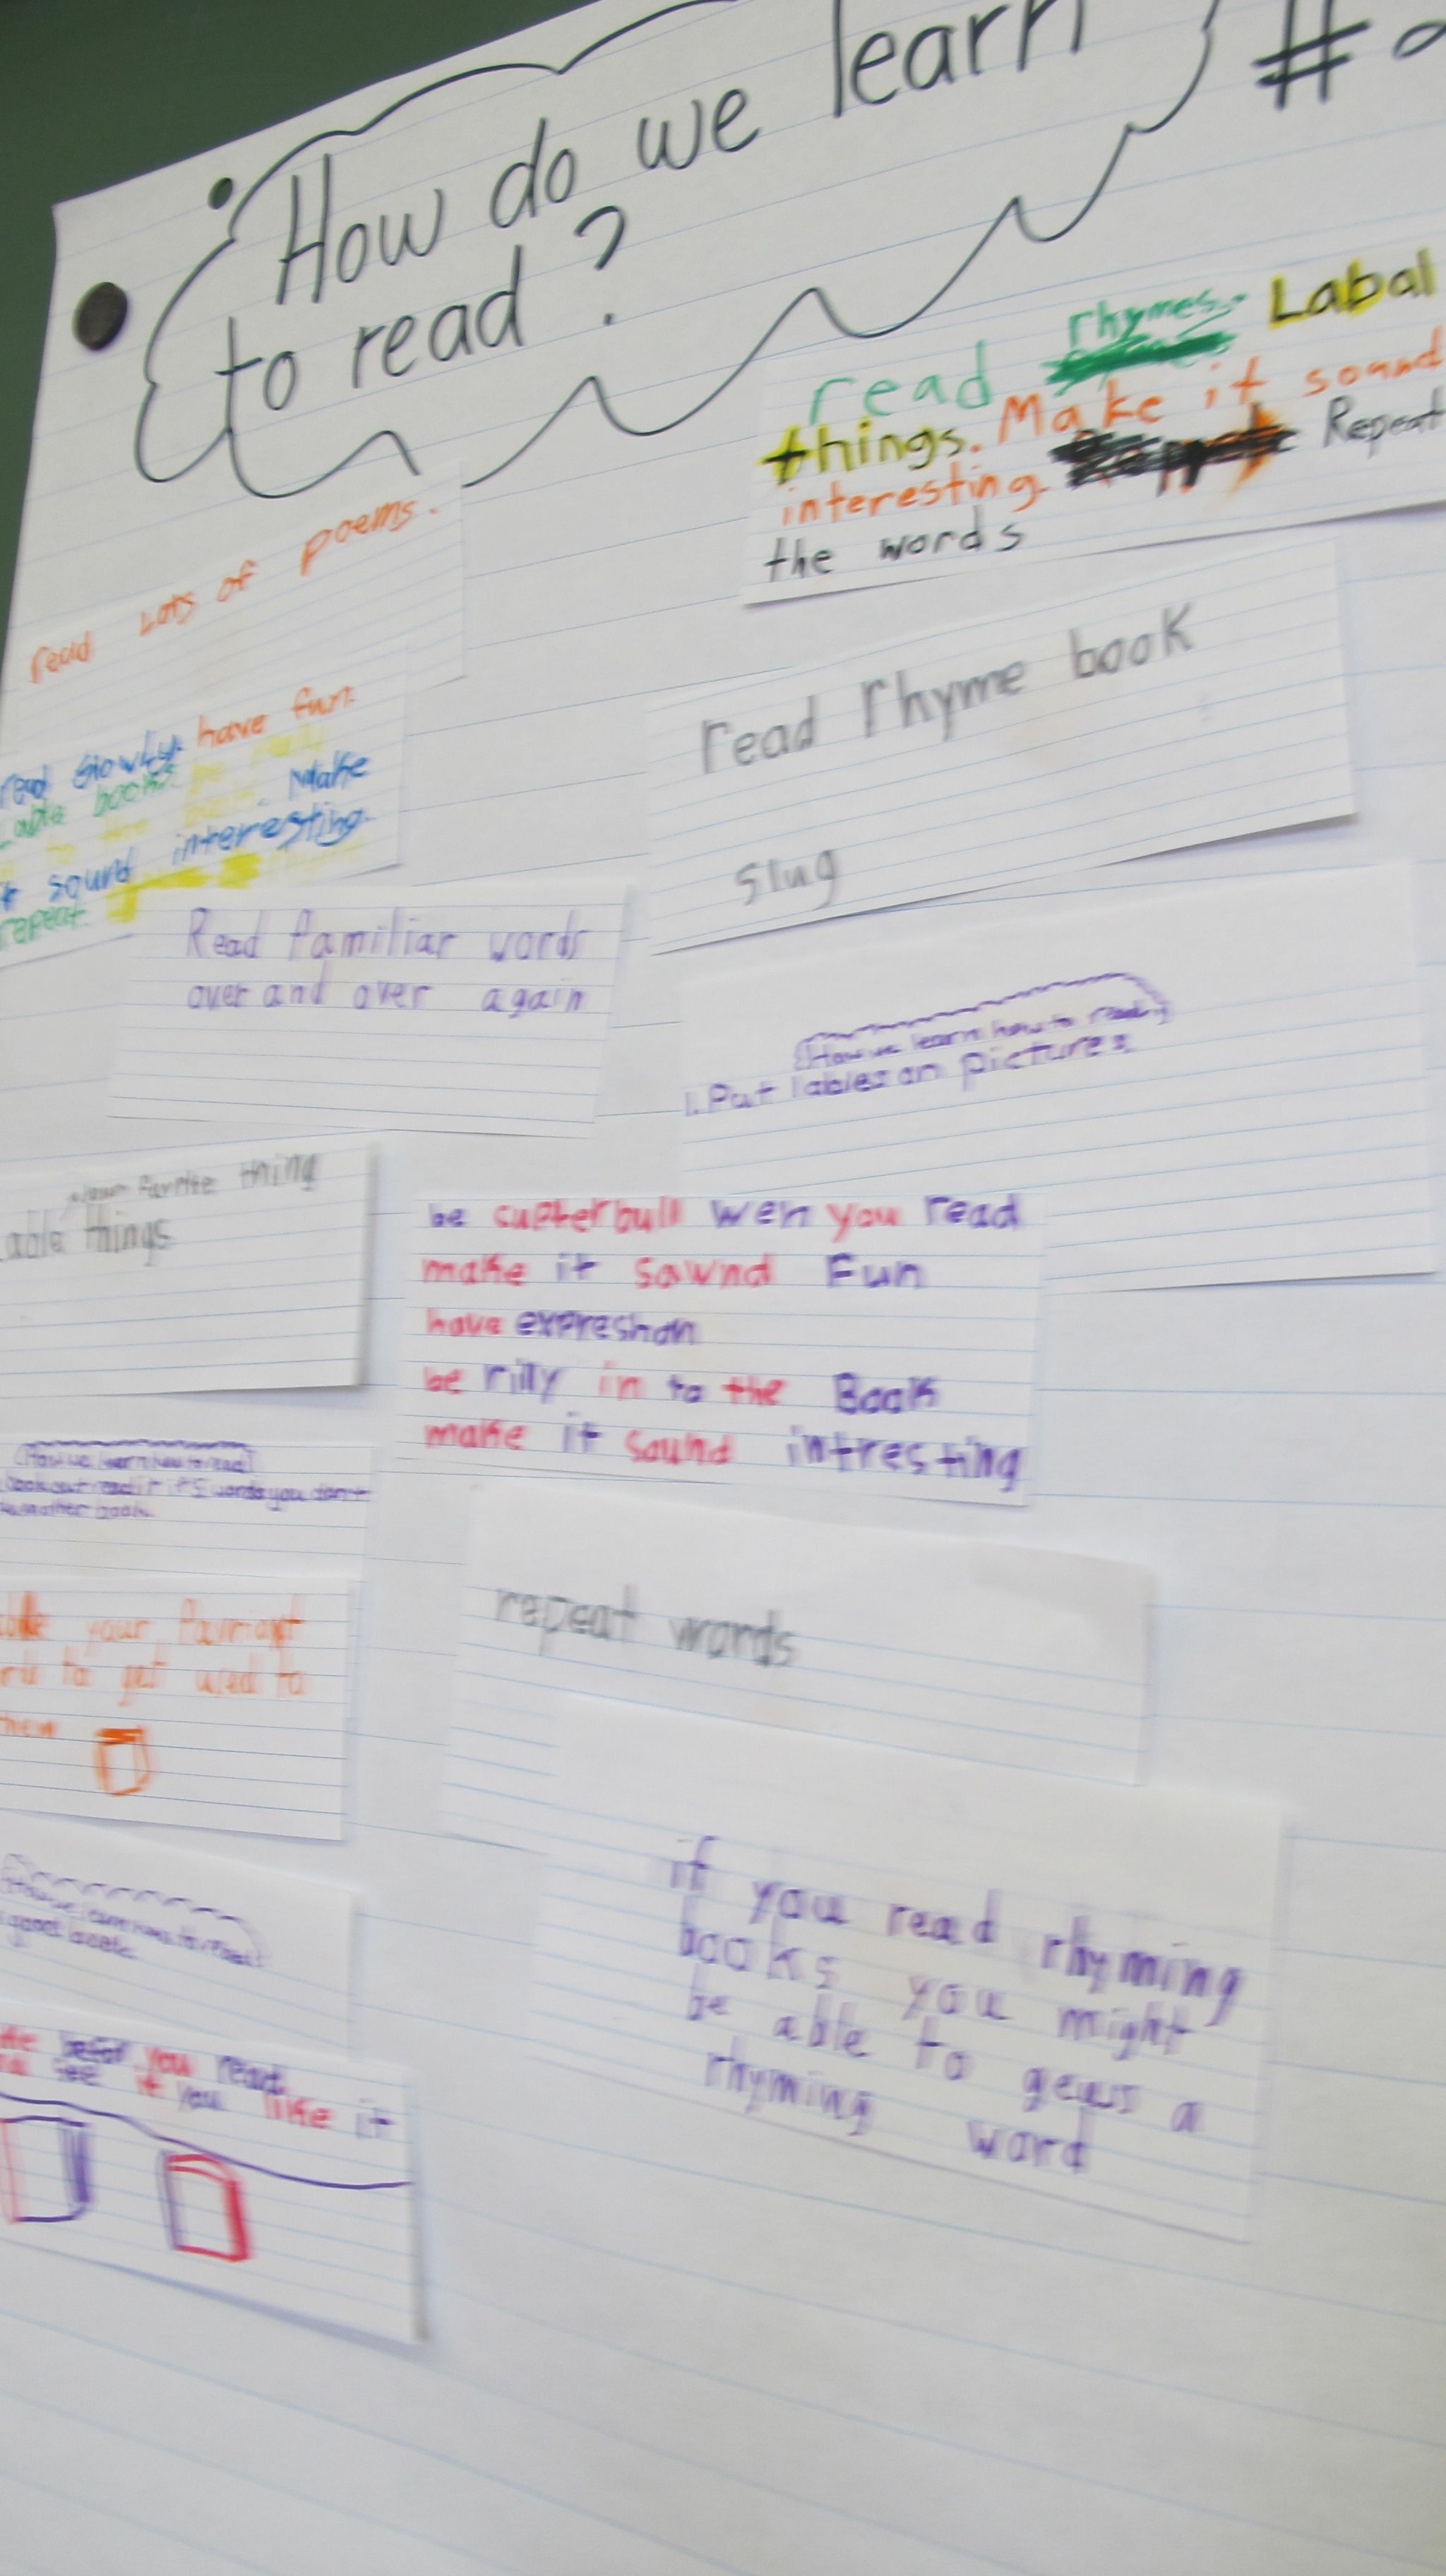 How do we learn
to read?
#
read Lots of poems.
read rhymes. Labal
things. Make it sound
interesting. Repeat
the words
read slowly. have fun.
books.
Make
sound interesting.
repeat.
read rhyme book
slug
Read familiar words
over and over again
How we learn how to read
1. Put lables on pictures.
favrite thing
things
be cupterbull wen you read
make it sawnd Fun
have expreshan
be rilly in to the Book
make it sound intresting
How we learn how to read
read it it's words you don't
another book.
your
to get used to
them
repeat words
if you read rhyming
books you might
be able to gews a
rhyming word
how to read
good
befor you read
see if you like it